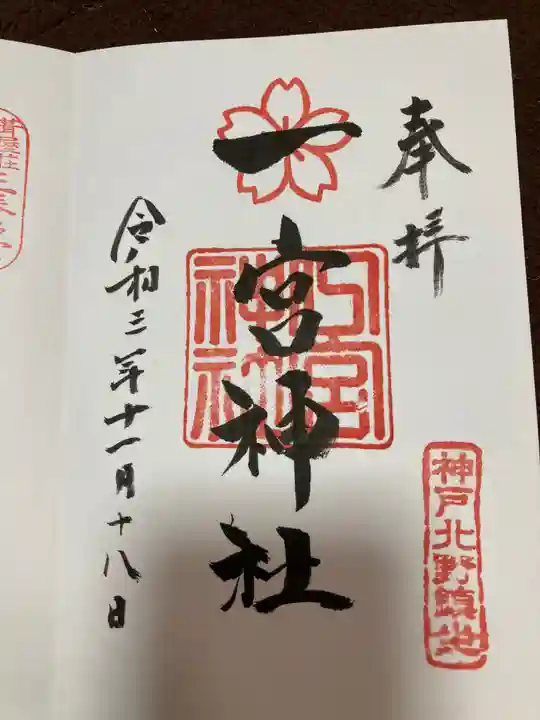 奉拝
神戸北野鎮地
一宮神社
一宮神社
令和三年十一月十八日